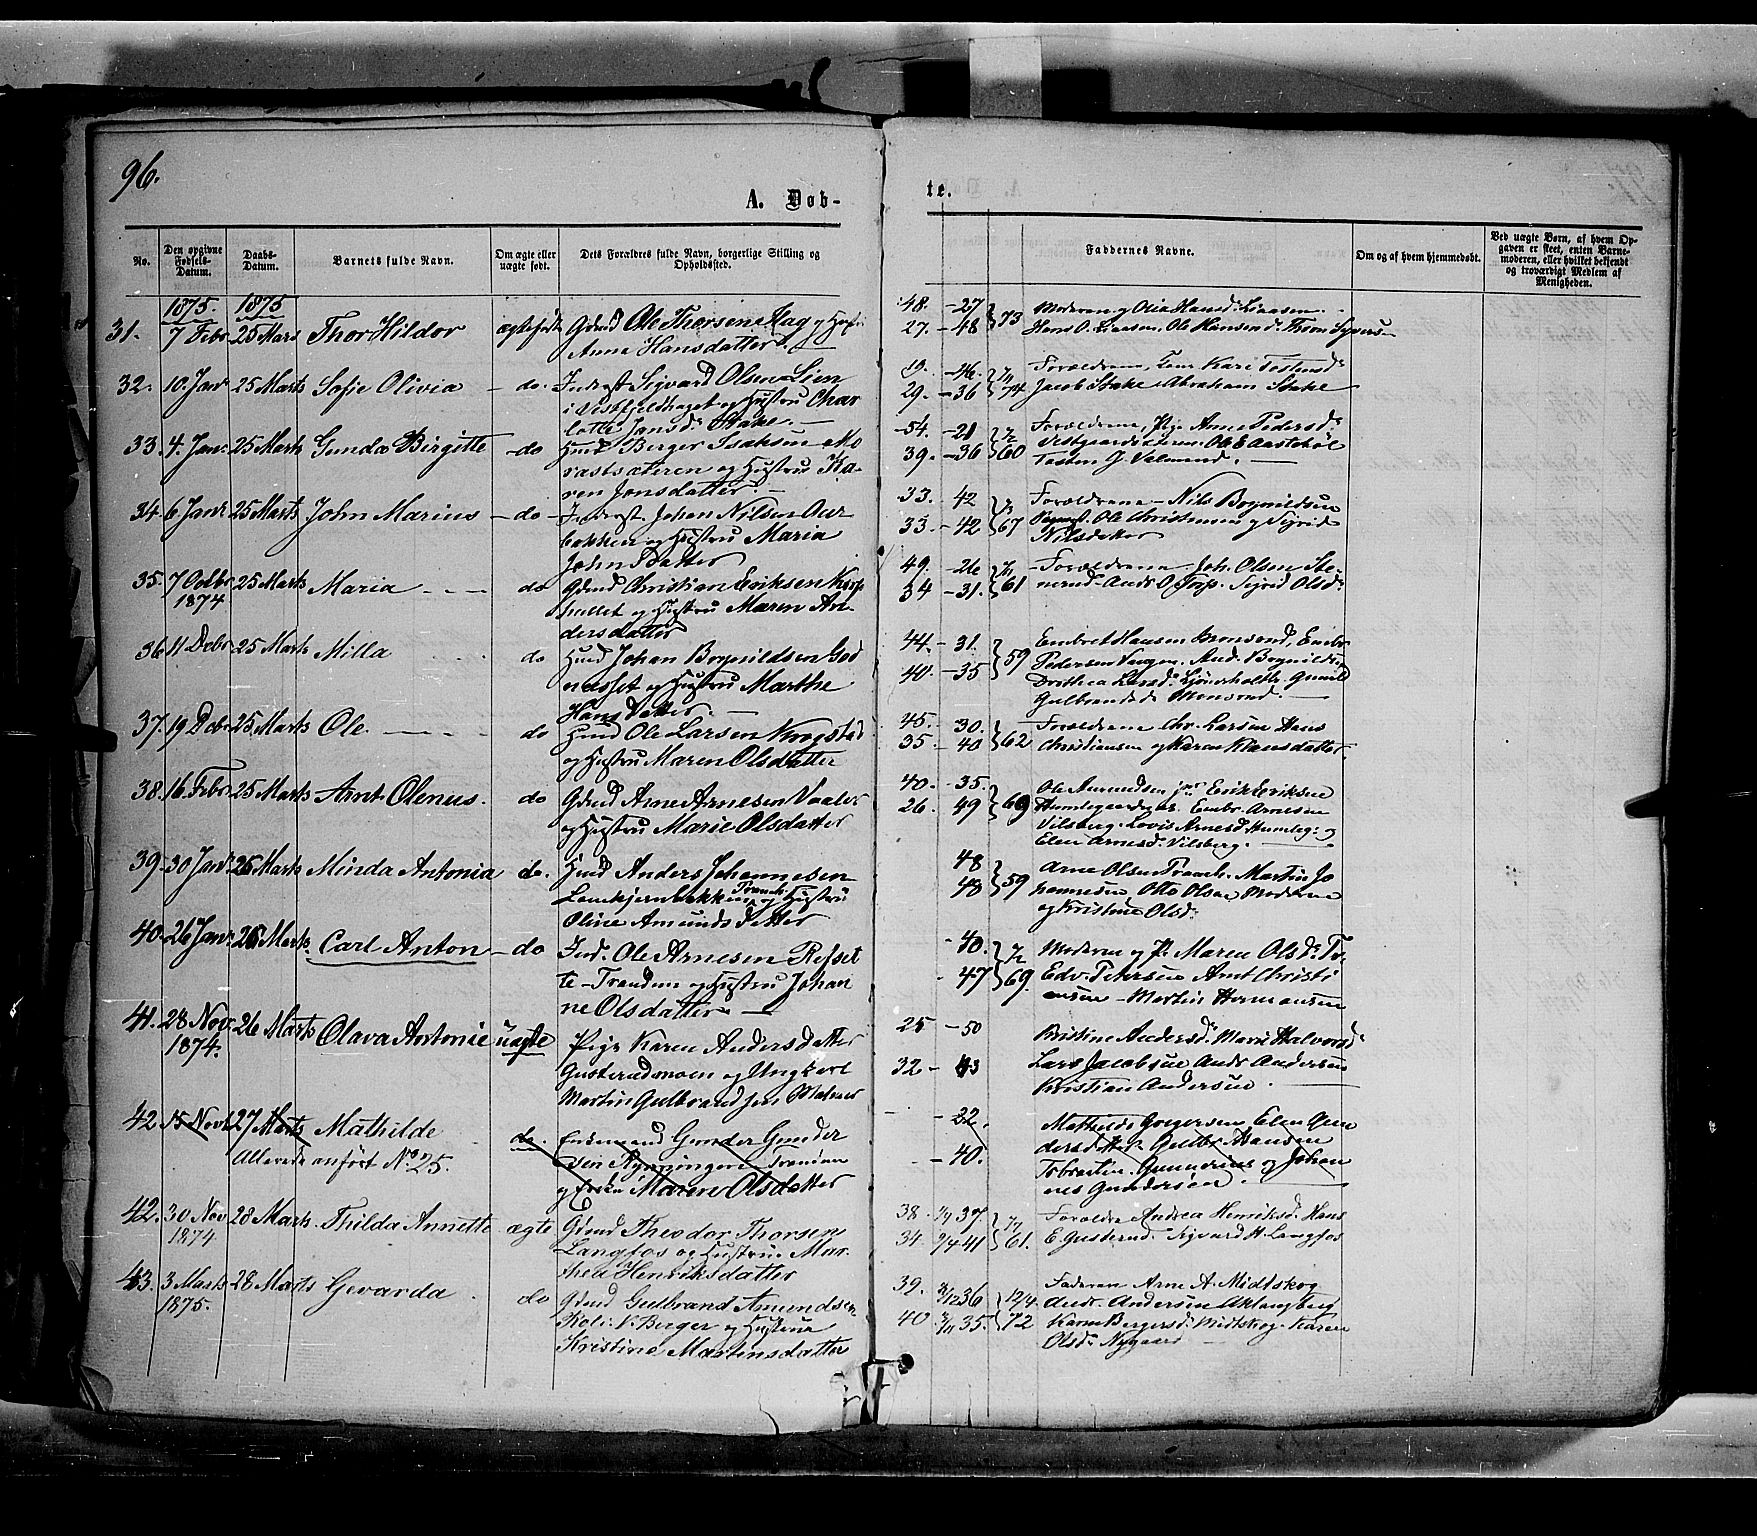 96.
A. Døb-
te.
No.
Den opgivne Fødsels-Datum.
Daabs-Datum.
Barnets fulde Navn.
Om ægte eller uægte født.
Dets Forældres fulde Navn, borgerlige Stilling og Opholdssted.
Faddernes Navne.
Om og af hvem hjemmedøbt.
Ved uægte Børn, af hvem Op-
gaven er skeet, enten Barne-
moderen, eller hvilket bekjendt
og troværdigt Medlem af
Menigheden.
1875. 1875
31. 7 Febr 25 Mars Thor Hildor ægtefødt Gdmd Ole Thorsen Hag og Hust.
Anne Hansdatter.
48. - 27 } 73 Moderen og Olia Hansd.
27. - 48 Hans O. Ole Hansen
32. 10 Jan 25 Marts Sofie Olivia - do. Inderst Sigvard Olsen Lien
i Vestfjeldhaget og Hustru Char
lotte Jansd. Stake.
19. - 46. Forældrene, Kari Tostensd.
29. - 36 } 74 Jacob Stake Abraham Stake
33. 4. Jan. 25 Marts Gunda Birgitte - do Husmd Berger Isaksen Mo
rastsæteren og Hustru Ka
ren Jonsdatter.
54. - 21 Forældrene, Pige Anne Pedersd.
39. - 36 } 60 Ole E Aastebøl
Tosten J
34. 6 Janr. 25 Marts John Marius - do - Inderst Johan Nilsen Aur
bakken og Hustru Maria
Johnsdatter
33. 42 Forældrene - Nils Bognildsen
33. - 42 } 67 Ole Christensen og Sigrid
Nilsdatter
35. 7 Octbr 25 Marts Maria - - - do Gdmd Christian Eriksen Korp
hallet og Hustru Maren An-
dersdatter
1874
49. - 26 Forældrene - Joh. Olsen Ste-
34 - 31. } 61 nerud - Sigrid Olsd.
36 11 Debr 25 Marts Milla do Husmd Johan Bognildsen God
naset og Hustru Marthe
Hansdatter.
44. - 31. Embret Hansen Monsrud, Embr.
40. - 35 } 59 Pedersen And. Bognildsen
Dorthea Larsd. Gunild
Gulbrandsd. Monsrud.
37. 19 Debr 25 Marts Ole. - - - do Husmd Ole Larsen Krogstad
og Hustru Maren Olsdatter
45. - 30. Forældrene Chr. Larsen Hans
35. - 40 } 62 Christiansen og Karen Klausdatter
38. 16 Febr. 25 Marts Arnt Olenus. do Gdmd Arne Arnesen Vaaler
og Hustru Marie Olsdatter
40. - 35. Ole Amundsen Erik Eriksen
26. 49 } 69 Embr. Arnesen
Vilsberg. Lovis Arnesd. og
Elen Arnesd. Vilsberg.
39. 30 Janr. 26 Marts Minda Antonia do. Husmd Anders Johannesen
og Hustru
Oline Amundsdatter
48 Arne Olsen Martin Jo
48 } 59 hannesen Otto Olsen Moderen
og Kristine Olsd.
40. 26 Janr. 26 Marts. Carl Anton - do Ind. Ole Arnesen Refset
te - Tranden og Hustru Johan
ne Olsdatter.
- 40. Moderen og P. Maren Olsd.
- 47 } 69. Edv. Petersen Arnt Christi
ansen - Martin Hermansen
41. 28 Nov. 26 Marts Olava Antonie uægte Pige Karen Andersdatter
Gusterudmoen og Ungkarl
Martin Gulbrandsen
1874.
25 - 50 Kristine Andersd. Marie Halvorsd.
32. - 43 Lars Jacobsen Andr. Andersen
Kristian Andersen.
42 15 Novb 27 Marts Mathilde do. Enkemand Gunder Gunder
sen Rynningen Tranden
og Enke Maren Olsdatter
Allerede anført No. 25.
- 22. Mathilde Elen Gun
- 40. dersdatter. Gulbr. Hansen
Gundersen og Johan
nes Gundersen.
42. 30 Nov 28 Marts. Thilda Annette ægte Gdmd Theodor Thorsen
Langfos og Hustru Mar
thea Henriksdatter
1874
38. 37 Forældrene Andrea Henriksd. Hans
34. 41 } 61. E. Gusterud. Sigvard H. Langfos
43. 3 Marts 28 Marts Gevarda do Gdmd Gulbrand Amundsen
Berger og Hustru
Kristine Martinsdatter
1875.
39. 36 } 12/4 Faderen Arne A. Midtskog
40 35. } 72 Andr. Andersen
Karen Bergersd. Midtskog. Karen
Olsd. Nygaard